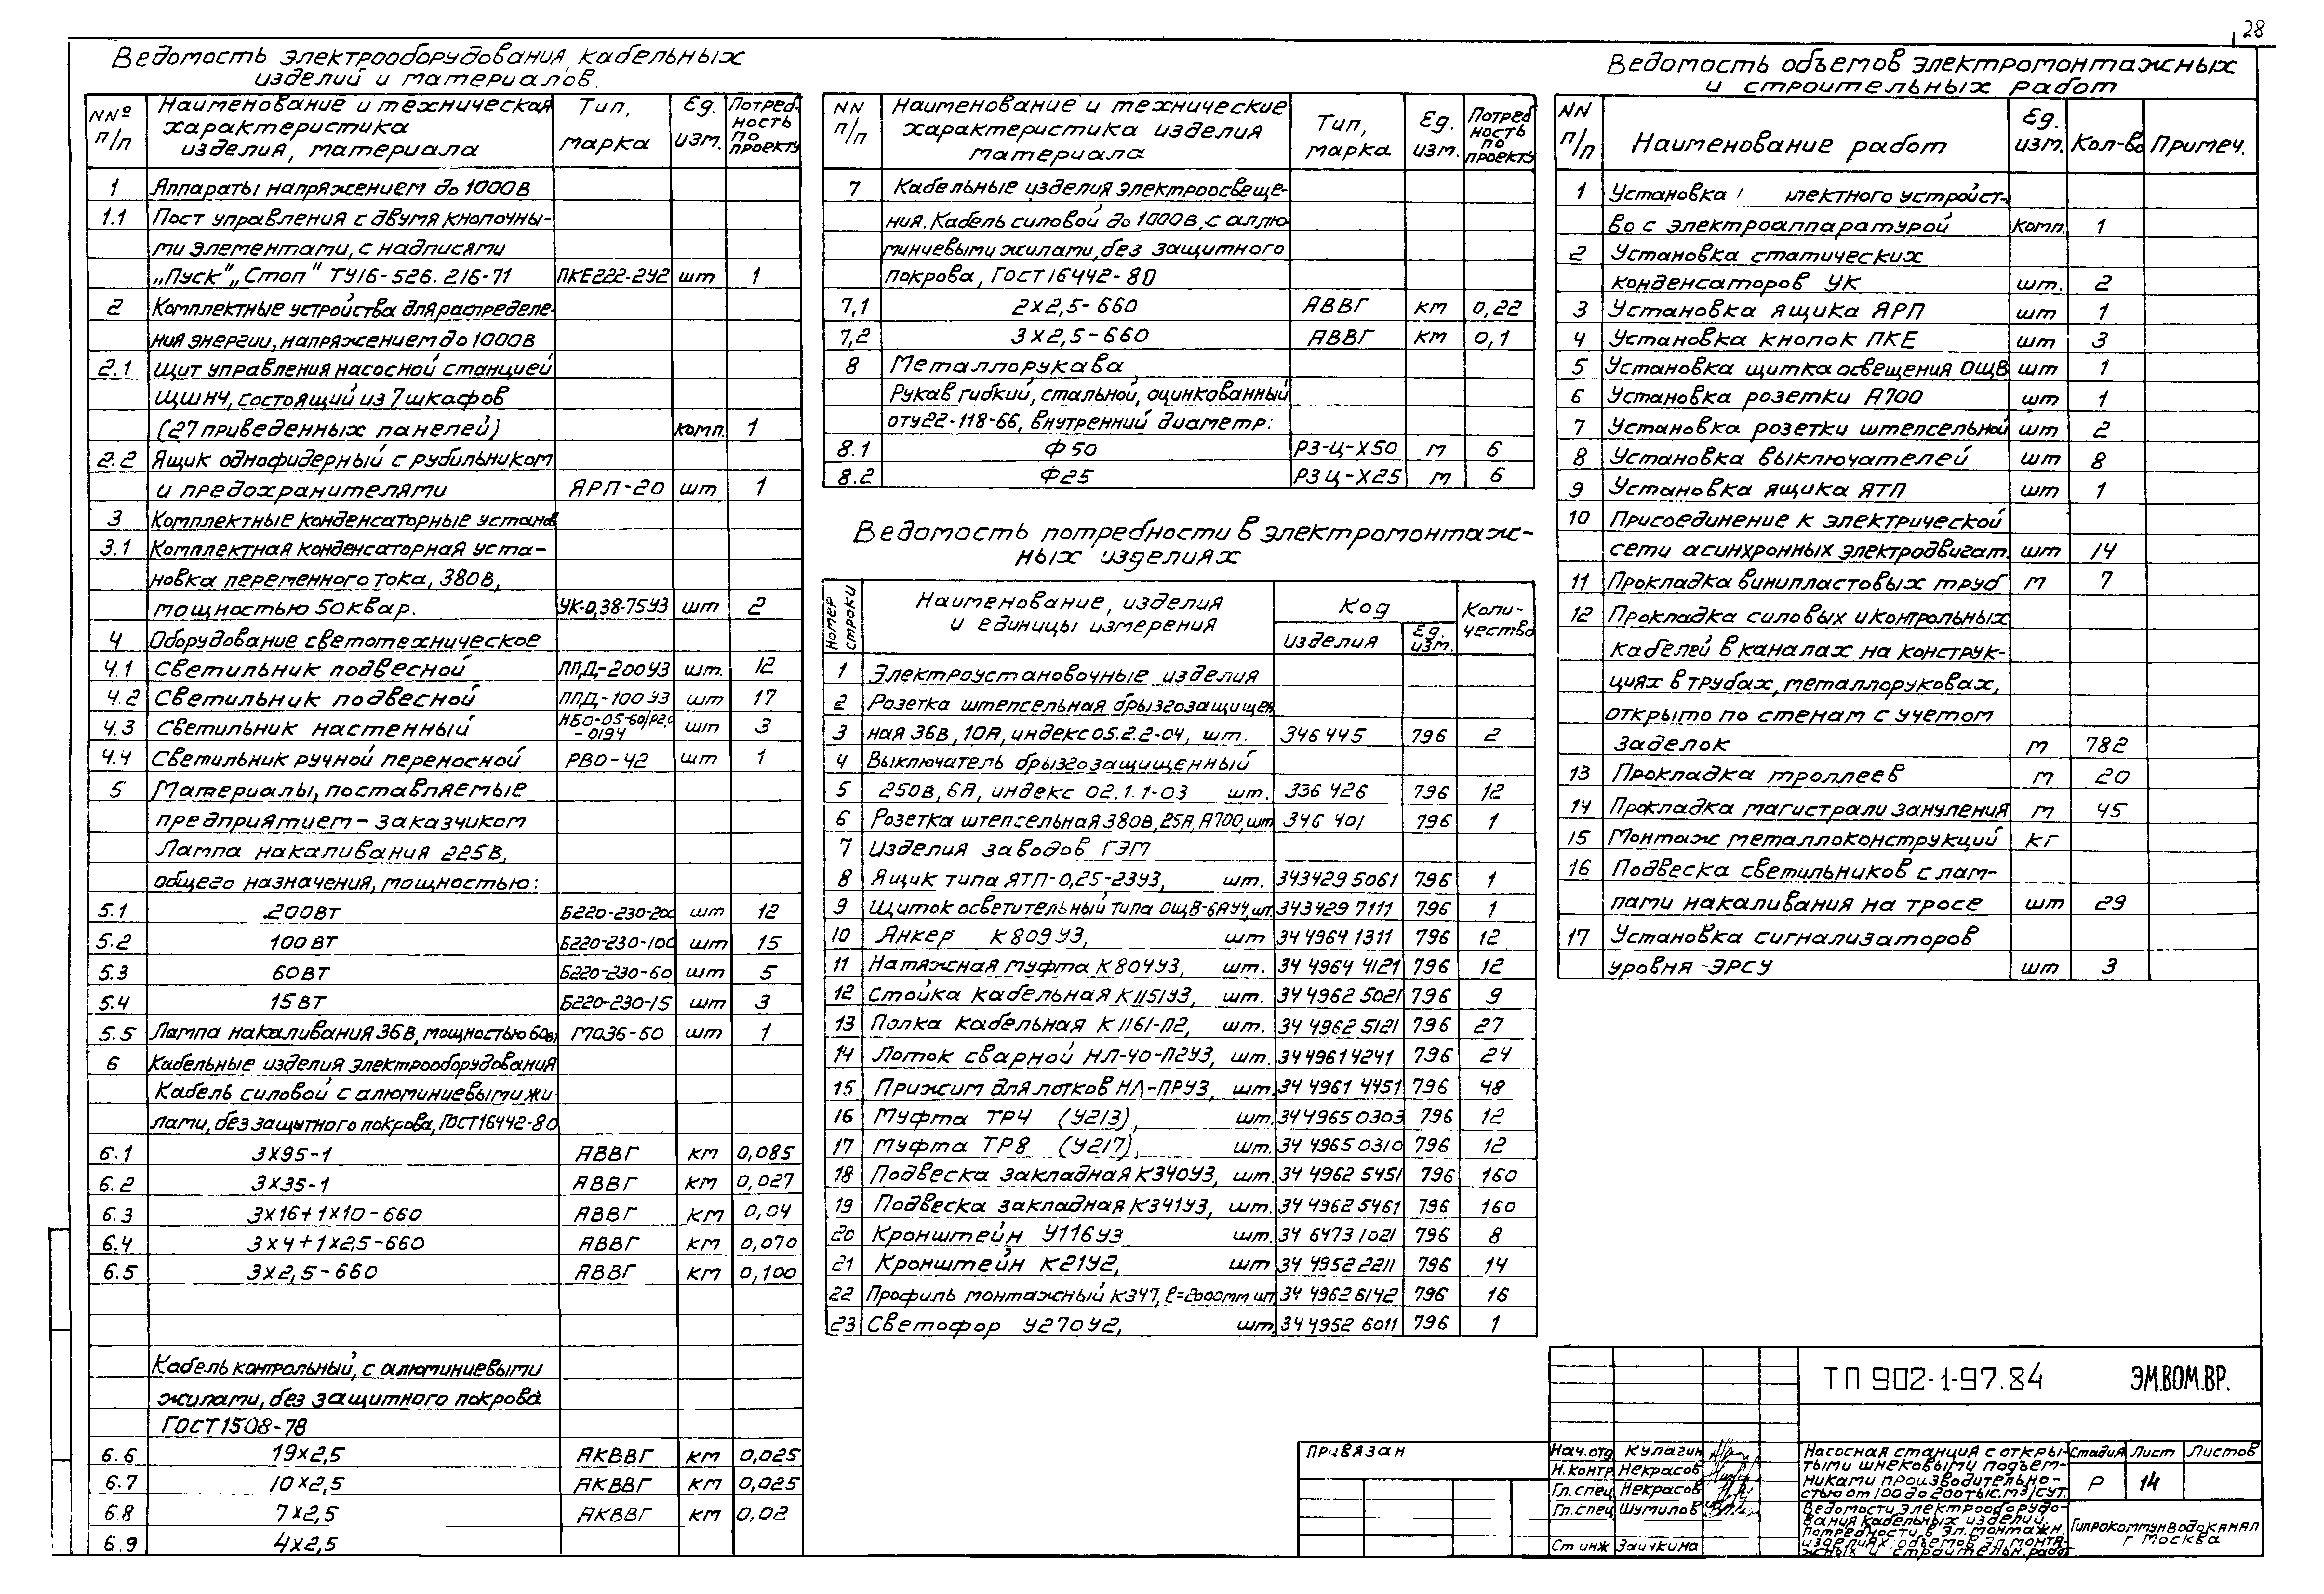 28
Ведомость электрооборудования, кабельных
изделий и материалов.
NNº п/п | Наименование и техническая характеристика изделия, материала | Тип, марка | Ед. изм. | Потребность по проекту
1 Аппараты напряжением до 1000В
1.1 Пост управления с двумя кнопочны-
ми элементами, с надписями
„Пуск“ „Стоп“ ТУ16-526.216-71 ПКЕ222-2У2 шт 1
2 Комплектные устройства для распределе-
ния энергии, напряжением до 1000В
2.1 Щит управления насосной станцией
ЩШНЧ, состоящий из 7 шкафов
(27 приведенных панелей) комп. 1
2.2 Ящик однофидерный с рубильником
и предохранителями ЯРП-20 шт 1
3 Комплектные конденсаторные установ
3.1 Комплектная конденсаторная уста-
новка переменного тока, 380В,
мощностью 50квар. УК-0,38-75У3 шт 2
4 Оборудование светотехническое
4.1 Светильник подвесной ППД-200У3 шт. 12
4.2 Светильник подвесной ППД-100У3 шт 17
4.3 Светильник настенный НБО-05-60/Р2,0 -0194 шт 3
4.4 Светильник ручной переносной РВО-42 шт 1
5 Материалы, поставляемые
предприятием-заказчиком
Лампа накаливания 225В,
общего назначения, мощностью:
5.1 200ВТ Б220-230-200 шт 12
5.2 100ВТ Б220-230-100 шт 15
5.3 60ВТ Б220-230-60 шт 5
5.4 15ВТ Б220-230-15 шт 3
5.5 Лампа накаливания 36В, мощностью 60вт МО36-60 шт 1
6 Кабельные изделия электрооборудования
Кабель силовой с алюминиевыми жи-
лами, без защитного покрова, ГОСТ16442-80
6.1 3х95-1 АВВГ км 0,085
6.2 3х35-1 АВВГ км 0,027
6.3 3х16+1х10-660 АВВГ км 0,04
6.4 3х4+1х2,5-660 АВВГ км 0,070
6.5 3х2,5-660 АВВГ км 0,100
Кабель контрольный, с алюминиевыми
жилами, без защитного покрова
ГОСТ1508-78
6.6 19х2,5 АКВВГ км 0,025
6.7 10х2,5 АКВВГ км 0,025
6.8 7х2,5 АКВВГ км 0,02
6.9 4х2,5
NN п/п | Наименование и технические характеристика изделия материала | Тип, марка | Ед. изм. | Потребность по проекту
7 Кабельные изделия электроосвеще-
ния. Кабель силовой до 1000В, с аллю-
миниевыми жилами, без защитного
покрова, ГОСТ16442-80
7,1 2х2,5-660 АВВГ км 0,22
7,2 3х2,5-660 АВВГ км 0,1
8 Металлорукава
Рукав гибкий, стальной, оцинкованный
оту22-118-66, внутренний диаметр:
8.1 Ф50 РЗ-Ц-Х50 м 6
8.2 Ф25 РЗЦ-Х25 м 6
Ведомость потребности в электромонтаж-
ных изделиях
Номер строки | Наименование, изделия и единицы измерения | Код изделия | Ед. изм. | Количество
1 Электроустановочные изделия
2 Розетка штепсельная брызгозащищен
3 ная 36В, 10А, индекс 05.2.2-04, шт. 346445 796 2
4 Выключатель брызгозащищенный
5 250В, 6А, индекс 02.1.1-03 шт. 336 426 796 12
6 Розетка штепсельная 380В, 25А, А700, шт 346 401 796 1
7 Изделия заводов ГЭМ
8 Ящик типа ЯТП-0,25-23У3, шт. 343429 5061 796 1
9 Щиток осветительный типа ОЩВ-6АУ4, шт. 343429 7111 796 1
10 Анкер К809У3, шт 34 4964 1311 796 12
11 Натяжная муфта К804У3, шт. 34 4964 4121 796 12
12 Стойка кабельная К1151У3, шт. 34 4962 5021 796 9
13 Полка кабельная К1161-П2, шт. 34 4962 5121 796 27
14 Лоток сварной НЛ-40-П2У3, шт. 34 4961 4241 796 24
15 Прижим для лотков НЛ-ПРУ3, шт. 34 4961 4451 796 48
16 Муфта ТР4 (У213), шт. 34 4965 0303 796 12
17 Муфта ТР8 (У217), шт. 34 4965 0310 796 12
18 Подвеска закладная К340У3, шт. 34 4962 5451 796 160
19 Подвеска закладная К341У3, шт. 34 4962 5461 796 160
20 Кронштейн У116У3 шт. 34 6473 1021 796 8
21 Кронштейн К21У2, шт 34 4952 2211 796 14
22 Профиль монтажный К347, ℓ=2000мм шт. 34 4962 6142 796 16
23 Светофор У270У2, шт. 34 4952 6011 796 1
Ведомость объемов электромонтажных
и строительных работ
NN п/п | Наименование работ | Ед. изм. | Кол-во | Примеч.
1 Установка лектного устройст-
во с электроаппаратурой Комп. 1
2 Установка статических
конденсаторов УК шт. 2
3 Установка ящика ЯРП шт 1
4 Установка кнопок ПКЕ шт 3
5 Установка щитка освещения ОЩВ шт 1
6 Установка розетки А700 шт 1
7 Установка розетки штепсельной шт 2
8 Установка выключателей шт 8
9 Установка ящика ЯТП шт 1
10 Присоединение к электрической
сети асинхронных электродвигат. шт 14
11 Прокладка винипластовых труб м 7
12 Прокладка силовых и контрольных
кабелей в каналах на конструк-
циях в трубах, металлоруковах,
открыто по стенам с учетом
заделок м 782
13 Прокладка троллеев м 20
14 Прокладка магистрали зануления м 45
15 Монтаж металлоконструкций кг
16 Подвеска светильников с лам-
пами накаливания на тросе шт 29
17 Установка сигнализаторов
уровня ЭРСУ шт 3
ТП 902-1-97.84 ЭМ.ВОМ.ВР.
Привязан
Нач.отд Кулагин
Н.контр Некрасов
Гл.спец Некрасов
Гл.спец Шумилов
Ст инж Заичкина
Насосная станция с откры-
тыми шнековыми подъем-
никами производительно-
стью от 100 до 200 тыс.м3/сут.
Стадия Лист Листов
Р 14
Ведомости электрооборудо-
вания кабельных изделий,
потребности в эл.монтажн.
изделиях, объемов эл.монта-
жных и строительн. работ
Гипрокоммунводоканал
г Москва